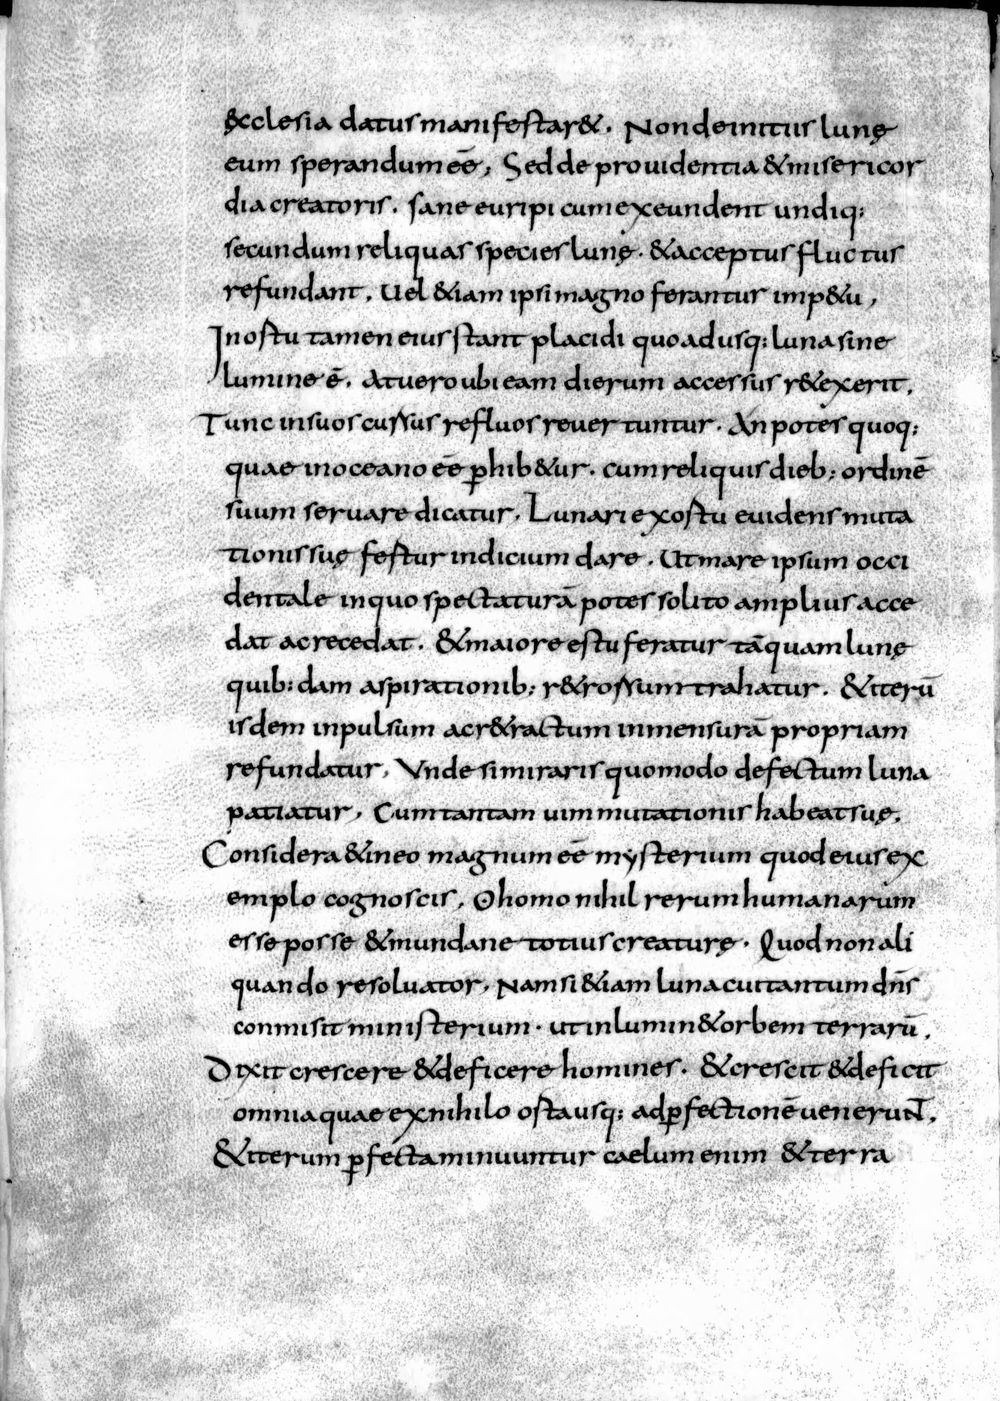 &clesia datus manifestar&. Non deinitius lunę
eum sperandum eē, Sed de prouidentia & misericor
dia creatoris. sane euripi cum exeundent undiq;
secundum reliquas species lunę. & acceptus fluctus
refundant, Uel &iam ipsi magno ferantur imp&u,
In ostu tamen eius stant placidi quoadusq; luna sine
lumine ē. At uero ubi eam dierum accessus r&exerit,
Tunc in suos cussus refluos reuertuntur. An potes quoq;
quae in oceano eē p̱hib&ur. cum reliquis dieb; ordinē
suum seruare dicatur, Lunari exostu euidens muta
tionis suę festur indicium dare. Ut mare ipsum occi
dentale in quo spectaturā potes solito amplius acce
dat ac recedat. & maiore estu feratur tāquam lunę
quib;dam aspirationib; r&rossum trahatur. & iterū
isdem inpulsum ac r&ractum in mensurā propriam
refundatur, Unde si miraris quomodo defectum luna
patiatur, Cum tantam uim mutationis habeat suę,
Considera & in eo magnum eē mysterium quod eius ex
emplo cognoscis, O homo nihil rerum humanarum
esse posse & mundane totius creaturę. Quod non ali
quando resoluator, Nam si &iam luna cui tantum dn̄s
conmisit ministerium. ut inlumin& orbem terrarū,
Dixit crescere & deficere homines. & crescit & deficit
omnia quae ex nihilo osta usq; ad p̱fectionē uenerunt,
& iterum p̱fecta minuuntur caelum enim & terra